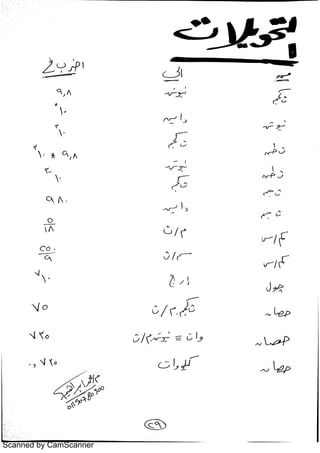 التحويلات
من الى اضرب فى
ثكجم نيوتن ٩,٨
نيوتن داين ١٠^٥
ثطن ثكجم ١٠^٣
ثطن نيوتن ٩,٨ * ١٠^٣
ثجم ثكجم ١٠^-٣
ثجم داين ٩٨٠
كم/س م/ث ٥/١٨
كم/س سم/ث ٢٥٠/٩
جول ارج ١٠^٧
حصان ثكجم.م/ث ٧٥
حصان وات = نيوتن.م/ث ٧٣٥
حصان كيلووات ٠,٧٣٥
٢٩
Scanned by CamScanner